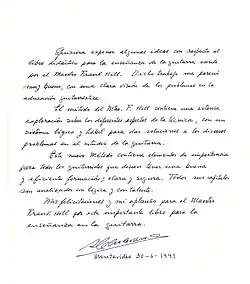 Quisiera exponer algunas ideas con respecto al
libro didáctico para la enseñanza de la guitarra escrito
por el Maestro Frank Hill. Dicho trabajo me pareció
muy bueno, con una clara visión de los problemas en la
educación guitarrística.
El método del Mtro. F. Hill contiene una extensa
exploración sobre los diferentes aspectos de la técnica, con un
sistema lógico y hábil para dar soluciones a los diversos
problemas en el estudio de la guitarra.
Este nuevo Método contiene elementos de importancia
para todos los guitarristas que deseen tener una buena
y eficiente formación; clara y segura. Todos sus capítulos
son analizados con lógica y con talento.
Mis felicitaciones y mi aplauso para el Maestro
Frank Hill por este importante libro para la
enseñanza en la guitarra.
Montevideo 30-6-1991